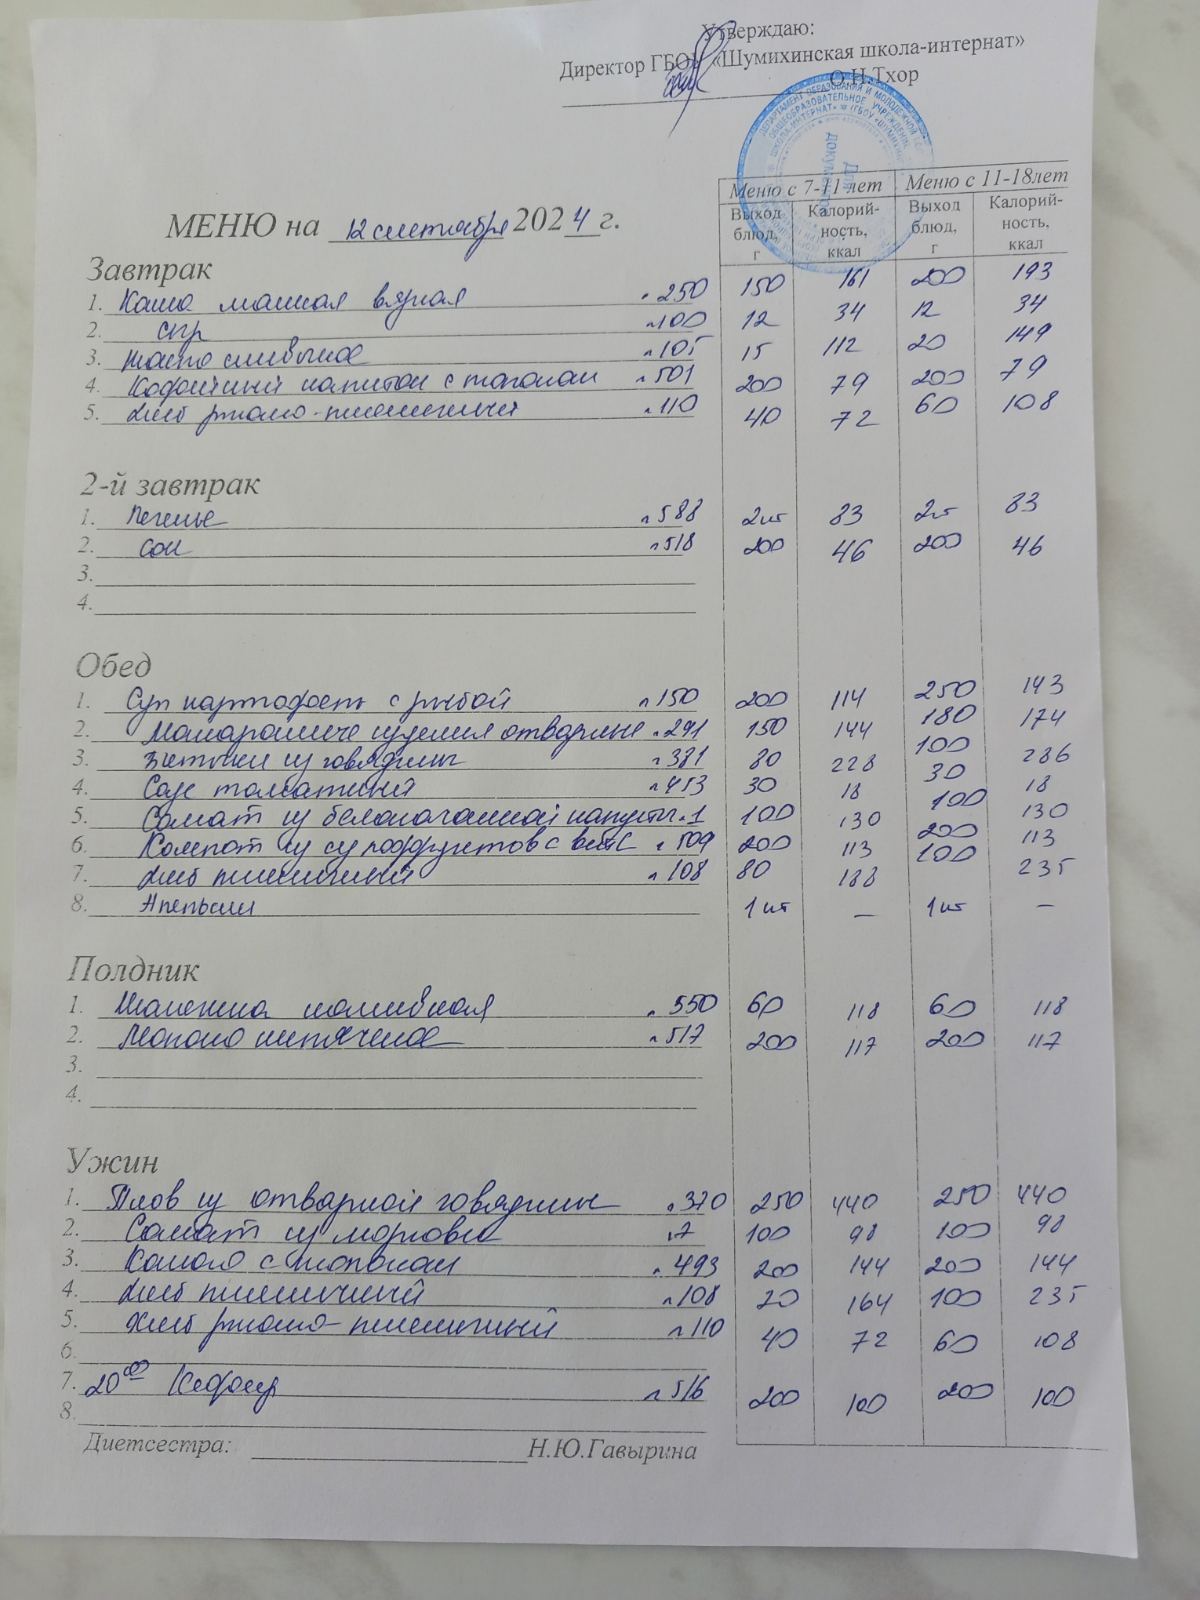 Утверждаю:
Директор ГБОУ «Шумихинская школа-интернат»
О.Н.Тхор
Меню с 7-11 лет Меню с 11-18лет
Выход блюд, г Калорий-ность, ккал Выход блюд, г Калорий-ность, ккал
МЕНЮ на 12 сентября 2024 г.
Завтрак
1. Каша манная вязкая №250 150 161 200 193
2. сыр №100 12 34 12 34
3. масло сливочное №105 15 112 20 149
4. Кофейный напиток с молоком №501 200 79 200 79
5. хлеб ржано-пшеничный №110 40 72 60 108
2-й завтрак
1. Печенье №588 2шт 83 2шт 83
2. сок №518 200 46 200 46
3.
4.
Обед
1. Суп картофель с рыбой №150 200 114 250 143
2. Макаронные изделия отварные №291 150 144 180 174
3. биточки из говядины №381 80 228 100 286
4. Соус томатный №453 30 18 30 18
5. Салат из белокочанной капусты №1 100 130 100 130
6. Компот из сухофруктов с вит С №509 200 113 200 113
7. хлеб пшеничный №108 80 188 100 235
8. Апельсин 1шт – 1шт –
Полдник
1. наливная №550 60 118 60 118
2. Молоко кипяченое №517 200 117 200 117
3.
4.
Ужин
1. Плов из отварной говядины №370 250 440 250 440
2. Салат из моркови №7 100 98 100 98
3. Какао с молоком №493 200 144 200 144
4. хлеб пшеничный №108 20 164 100 235
5. Хлеб ржано-пшеничный №110 40 72 60 108
6.
7. 20⁰⁰ Кефир №516 200 100 200 100
8.
Диетсестра: Н.Ю.Гавырина